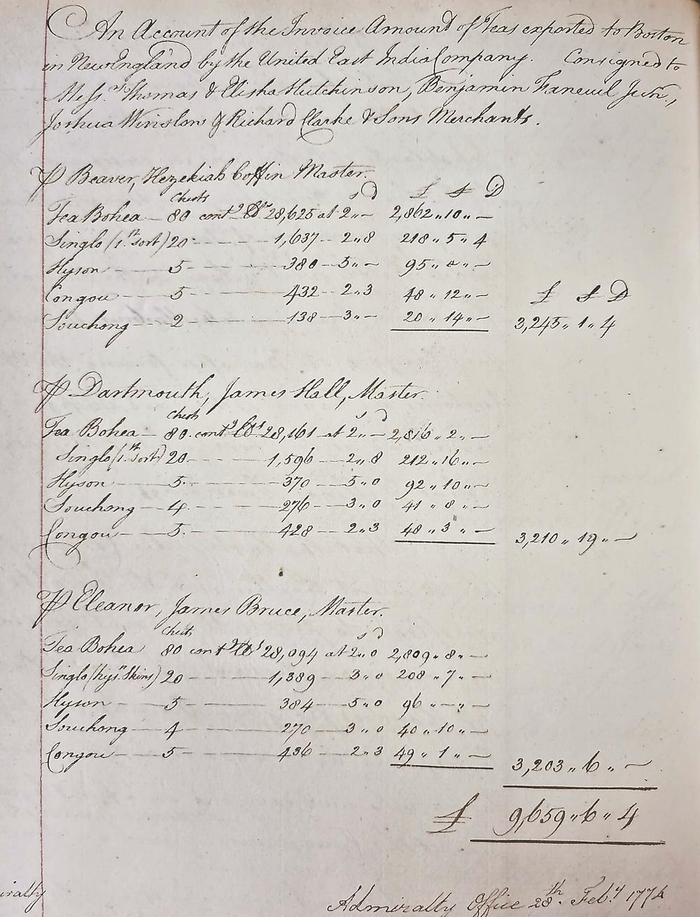 An Account of the Invoice Amount of Teas exported to Boston
in New England by the United East India Company. Consigned to
Mess.rs Thomas & Elisha Hutchinson, Benjamin Faneuil Junr.,
Joshua Winslow & Richard Clarke & Sons Merchants.
P Beaver, Hezekiah Coffin Master.
Chests s D £ S D
Tea Bohea — 80 cont.g lbs 28,625 at 2 „ — 2,862 „ 10 „ —
Singlo (1st sort) 20 — 1,637 — 2 „ 8 218 „ 5 „ 4
Hyson — 5 — 380 — 5 „ — 95 „ „ —
Congou — 5 — 432 — 2 „ 3 48 „ 12 „ — £ S D
Souchong — 2 — 138 — 3 „ — 20 „ 14 „ — 3,245 „ 1 „ 4
P Dartmouth, James Hall, Master.
Chests s D
Tea Bohea — 80 cont.g lbs 28,161 at 2 „ — 2,816 „ 2 „ —
Singlo (1st sort) 20 — 1,596 — 2 „ 8 212 „ 16 „ —
Hyson — 5 — 370 — 5 „ 0 92 „ 10 „ —
Souchong — 4 — 276 — 3 „ 0 41 „ 8 „ —
Congou — 5 — 428 — 2 „ 3 48 „ 3 „ — 3,210 „ 19 „ —
P Eleanor, James Bruce, Master.
Chests s D
Tea Bohea 80 cont.g lbs 28,094 at 2 „ 0 2,809 „ 8 „ —
Singlo (Hyn. Skins) 20 — 1,389 — 3 „ 0 208 „ 7 „ —
Hyson — 5 — 384 — 5 „ 0 96 „ — „ —
Souchong — 4 — 270 — 3 „ 0 40 „ 10 „ —
Congou — 5 — 436 — 2 „ 3 49 „ 1 „ — 3,203 „ 6 „ —
£ 9,659 „ 6 „ 4
Admiralty Office 28th Feby 1774